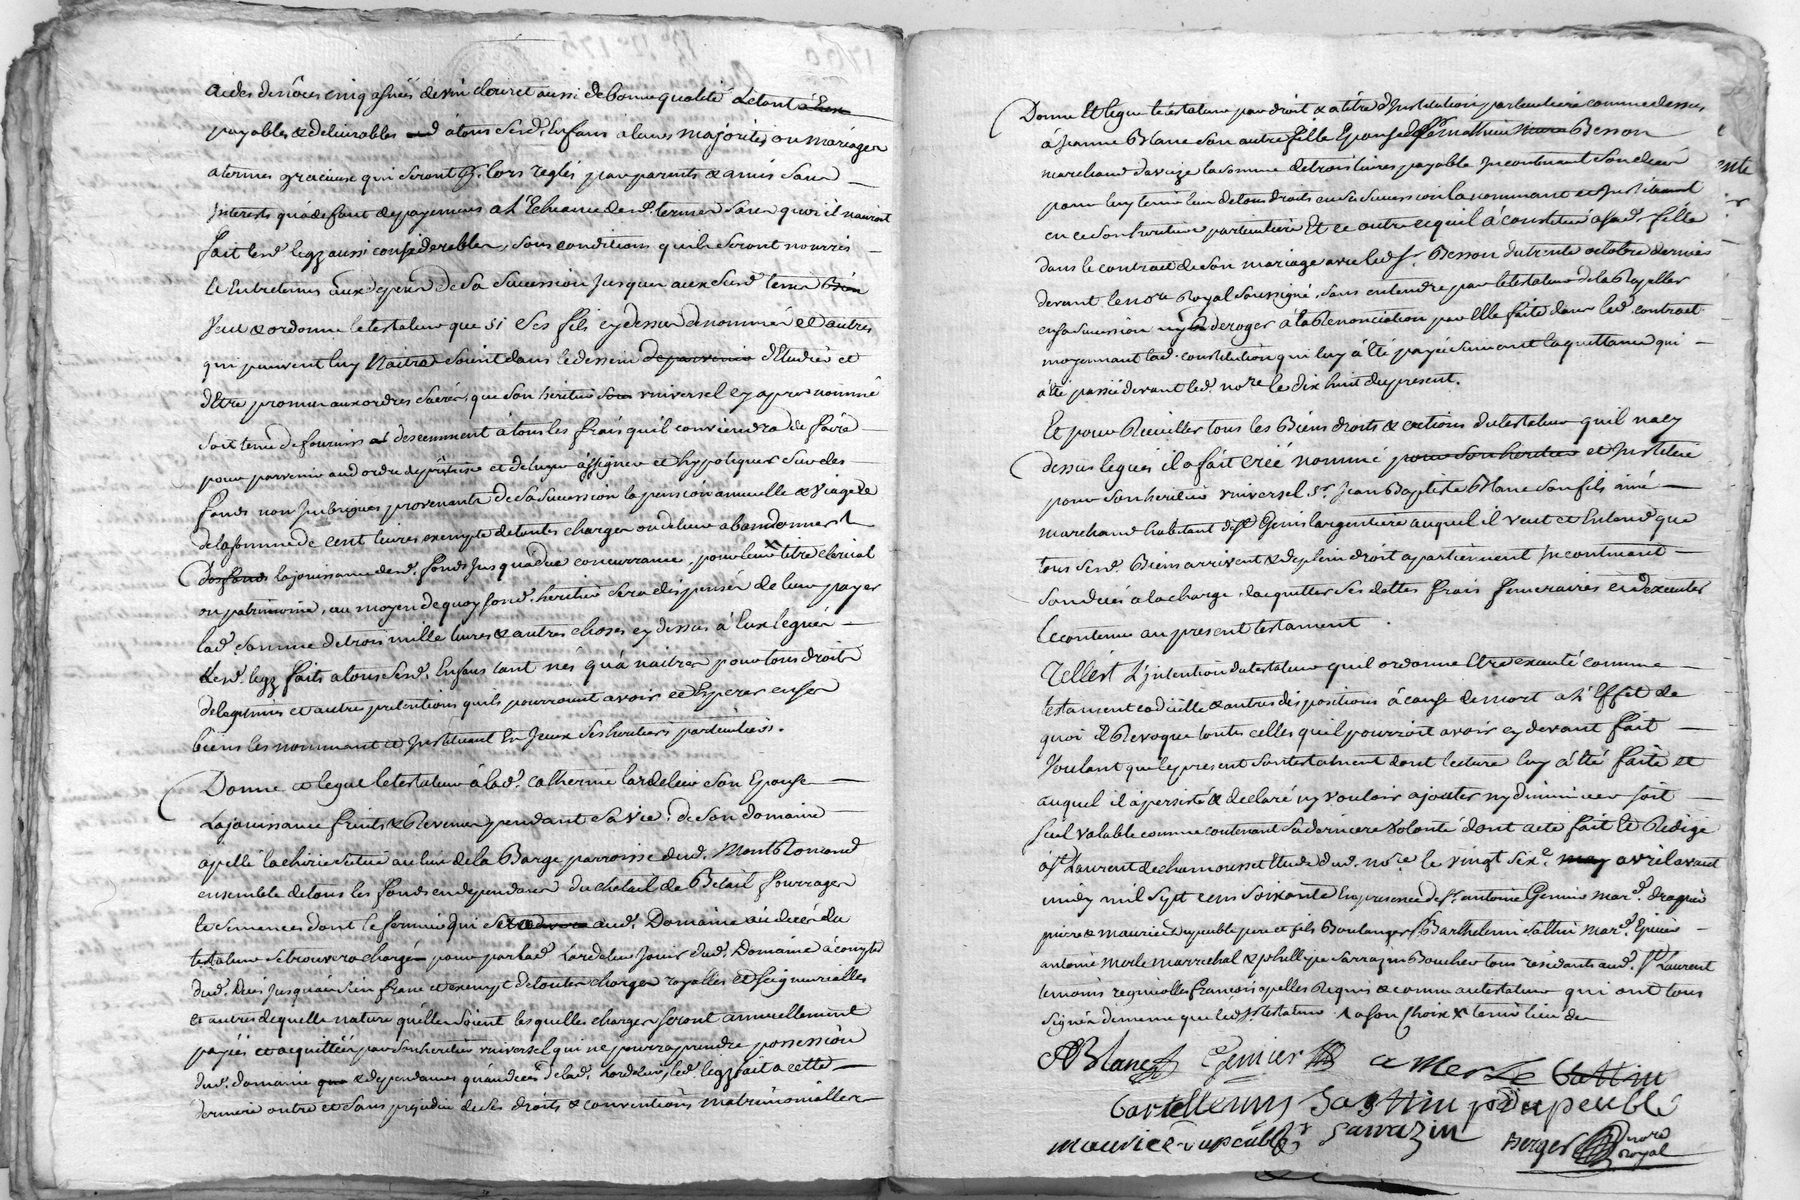 aides de nôces cinq asnées de vin clairet aussi de bonne qualité Letout
payables & delivrables à tous sesd. Enfans à leurs majorités ou mariages
a termes gracieux qui seront lors reglés par parents & amis sans
Interests qu'a deffaut de payemens a l'Echeance desd. termes sans quoi il n'auroit
fait lesd. legz aussi considerables, sous conditions quils seront nourris
& Entretenus aux depens de sa succession jusques aux susd. termes
Veut & ordonne le testateur que si ses fils cy dessus nommés et autres
qui peuvent luy Naitre soient dans le dessein d'Etudier et
d'Etre promus aux ordres sacrés, que son heritier universel cy apres nommé
soit tenu de fournir decemment à tous les frais qu'il conviendra de faire
pour parvenir aud ordre de prêtrise et de leur assigner et hypotequer sur des
fonds provenants de sa succession la pension annuelle & viagere
de la somme de cent livres exempte de toutes charges ou de leur abandonner
la jouissance desd. fonds jusqu'a due concurrance, pour leur titre clerical
ou patrimoine, au moyen de quoy sond. heritier sera dispensé de leur payer
lad. somme de trois mille livres & autres choses cy dessus à Eux leguées
Lesd. legz faits a tous sesd. Enfans tant nés qu'a naitre pour tous droits
de legitimes et autre pretentions quils pourroient avoir et Esperer en ses
biens les nommant et Instituant En iceux ses heritiers particuliers.
Donne et legue le testateur à lad. Catherine Lardeleur son Epouse
La jouissance fruits & Revenus pendant sa vie de son domaine
apellé situé au lieu de la Barge parroisse dud. Montromand
ensemble de tous les fonds en dependans du chetail de Betail fourrages
& semences dont le fermier qui aud. Domaine au decés du
testateur se trouvera chargé pour par lad. Lardeleur jouir dud. Domaine à compter
dud. decés jusqu'au sien franc et exempt de toutes charges royalles et seigneurialles
et autres de quelle nature qu'elles soient lesquelles charges seront annuellement
payées et acquittées par son heritier universel qui ne pourra prendre possession
dud. domaine & dependances qu'au decés de lad. Lardeleur, led. legz fait a cette
derniere outre et sans prejudice de ses droits & conventions matrimonialles
Donne Et legue le testateur par droit & a titre d'Institution particuliere comme dessus
à Jeanne Blanc son autre fille Epouse de Sr. Mathieu Besson
marchand la somme de trois livres, payable Incontinent son decés
pour luy tenir lieu de tous droits en sa succession la nommant et Instituant
en ce son heritiere particuliere Et ce outre ce quil a constitué a sad. fille
dans le contrat de son mariage avec led. Sr. Besson du trente octobre dernier
devant le nore Royal soussigné, sans entendre par le testateur de la Rapeller
en sa succession ny deroger à la Renonciation par elle faite dans led. contract
moyennant lad. constitution qui luy à été payée suivant la quittance qui
à été passée devant led. nore le dix huit du present.
Et pour Recuillir tous les Biens droits & actions du testateur quil n'a cy
dessus legués il a fait créé nommé pour son heritier et Institué
pour son heritier universel Sr. Jean Baptiste Blanc son fils ainé
marchand habitant Genis largentiere auquel il veut et Entend que
tous sesd. Biens arrivent & de plein droit apartiennent Incontinant
son decés a la charge d'acquitter ses dettes frais funeraires et d'executer
Le contenu au present testament.
Telle est L'intention du testateur quil ordonne Etre executé comme
testament codicille & autres dispositions à cause de mort a l'Effet de
quoi il Revoque toutes celles quil pourroit avoir cy devant fait
Voulant que le present son testament dont lecture luy a été faite et
auquel il à persisté & declaré ny vouloir ajouter ny diminuer soit
seul valable comme contenant sa derniere volonté dont acte fait & Redigé
à St. Laurent de chamousset Etude dud. nore le vingt six avril avant
midy mil sept cens soixante En presence de Sr. antoine Genier mard.
pierre & maurice Dupeuble pere et fils Boulangers Sr. Barthelemi Sathin mard. Epicier
antoine Merle marrechal & philippe Sarrazin Boucher tous residants aud. St. Laurent
temoins requis & connus au testateur qui ont tous
signés de meme que led. Sr. testateur a son choix & tenir lieu de
Blanc Genier a Merle Sathin
Bartellemy Sathin p Dupeuble
maurice dupeuble Sarrazin Berger nore royal